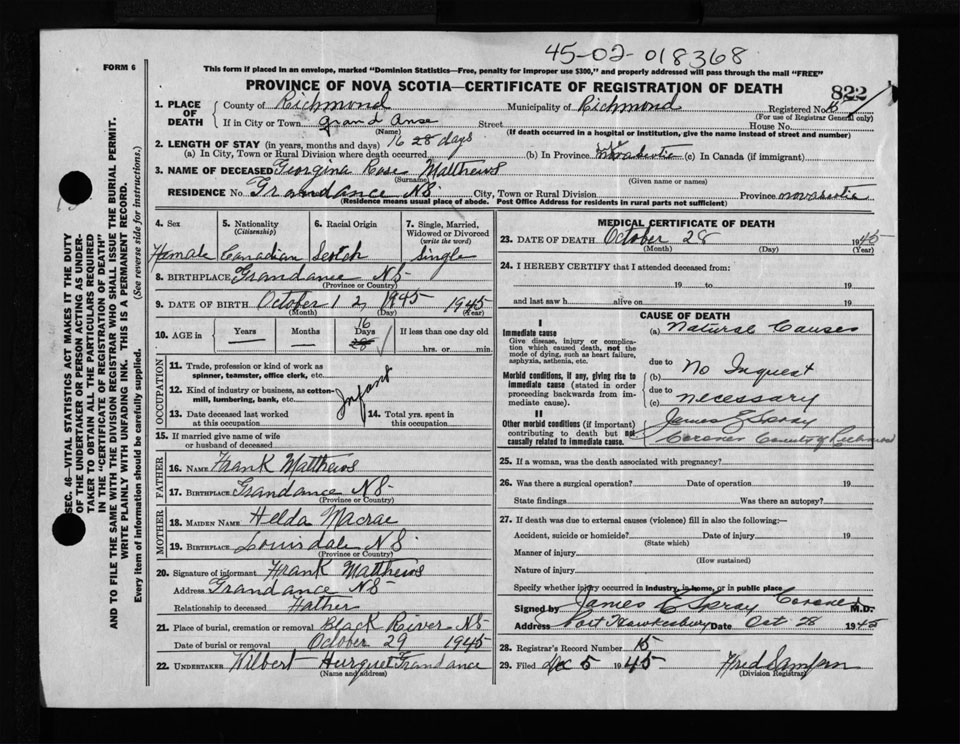 45-02-018368
FORM 6
This form if placed in an envelope, marked "Dominion Statistics—Free, penalty for improper use $300," and properly addressed will pass through the mail "FREE"
PROVINCE OF NOVA SCOTIA—CERTIFICATE OF REGISTRATION OF DEATH
822
1. PLACE OF DEATH
County of Richmond Municipality of Richmond Registered No. 15
(For use of Registrar General only)
If in City or Town Grand Anse Street House No.
(Name) (If death occurred in a hospital or institution, give the name instead of street and number)
2. LENGTH OF STAY (in years, months and days) 16 28 days
(a) In City, Town or Rural Division where death occurred (b) In Province Nova Scotia (c) In Canada (if immigrant)
3. NAME OF DECEASED Georgina Rose Matthews
(Surname) (Given name or names)
RESIDENCE No. Grandance NS City, Town or Rural Division Province Nova Scotia
(Residence means usual place of abode. Post Office Address for residents in rural parts not sufficient)
4. Sex 5. Nationality (Citizenship) 6. Racial Origin 7. Single, Married, Widowed or Divorced (write the word)
Female Canadian Scotch Single
8. BIRTHPLACE Grandance NS
(Province or Country)
9. DATE OF BIRTH October 12 1945 1945
(Month) (Day) (Year)
10. AGE in Years Months Days If less than one day old
16
28 hrs. or min.
OCCUPATION
11. Trade, profession or kind of work as spinner, teamster, office clerk, etc.
12. Kind of industry or business, as cotton-mill, lumbering, bank, etc.
Infant
13. Date deceased last worked at this occupation 14. Total yrs. spent in this occupation
15. If married give name of wife or husband of deceased
FATHER
16. NAME Frank Matthews
17. BIRTHPLACE Grandance NS
(Province or Country)
MOTHER
18. MAIDEN NAME Helda Macrae
19. BIRTHPLACE Louisdale NS
(Province or Country)
20. Signature of informant Frank Matthews
Address Grandance NS
Relationship to deceased Father
21. Place of burial, cremation or removal Black River NS
Date of burial or removal October 29 1945
22. UNDERTAKER Wilbert Grandance
(Name and address)
MEDICAL CERTIFICATE OF DEATH
23. DATE OF DEATH October 28 1945
(Month) (Day) (Year)
24. I HEREBY CERTIFY that I attended deceased from:
19 to 19
and last saw h alive on 19
CAUSE OF DEATH
I
Immediate cause (a) Natural Causes
Give disease, injury or complication which caused death, not the mode of dying, such as heart failure, asphyxia, asthenia, etc.
due to
Morbid conditions, if any, giving rise to immediate cause (stated in order proceeding backwards from immediate cause).
(b) No Inquest
due to
(c) necessary
II
Other morbid conditions (if important) contributing to death but not causally related to immediate cause.
James E Spray
Coroner County of Richmond
25. If a woman, was the death associated with pregnancy?
26. Was there a surgical operation? Date of operation 19
State findings Was there an autopsy?
27. If death was due to external causes (violence) fill in also the following:—
Accident, suicide or homicide? Date of injury 19
(State which)
Manner of injury
(How sustained)
Nature of injury
Specify whether injury occurred in industry, in home, or in public place
Signed by James E Spray Coroner M.D.
Address Port Hawkesbury Date Oct 28 1945
28. Registrar's Record Number 15
29. Filed Dec 5 1945 Fred Sampson
(Division Registrar)
SEC. 46—VITAL STATISTICS ACT MAKES IT THE DUTY OF THE UNDERTAKER OR PERSON ACTING AS UNDERTAKER TO OBTAIN ALL THE PARTICULARS REQUIRED IN THE "CERTIFICATE OF REGISTRATION OF DEATH" AND TO FILE THE SAME WITH THE DIVISION REGISTRAR WHO SHALL ISSUE THE BURIAL PERMIT.
WRITE PLAINLY WITH UNFADING INK. THIS IS A PERMANENT RECORD.
Every item of information should be carefully supplied. (See reverse side for instructions.)